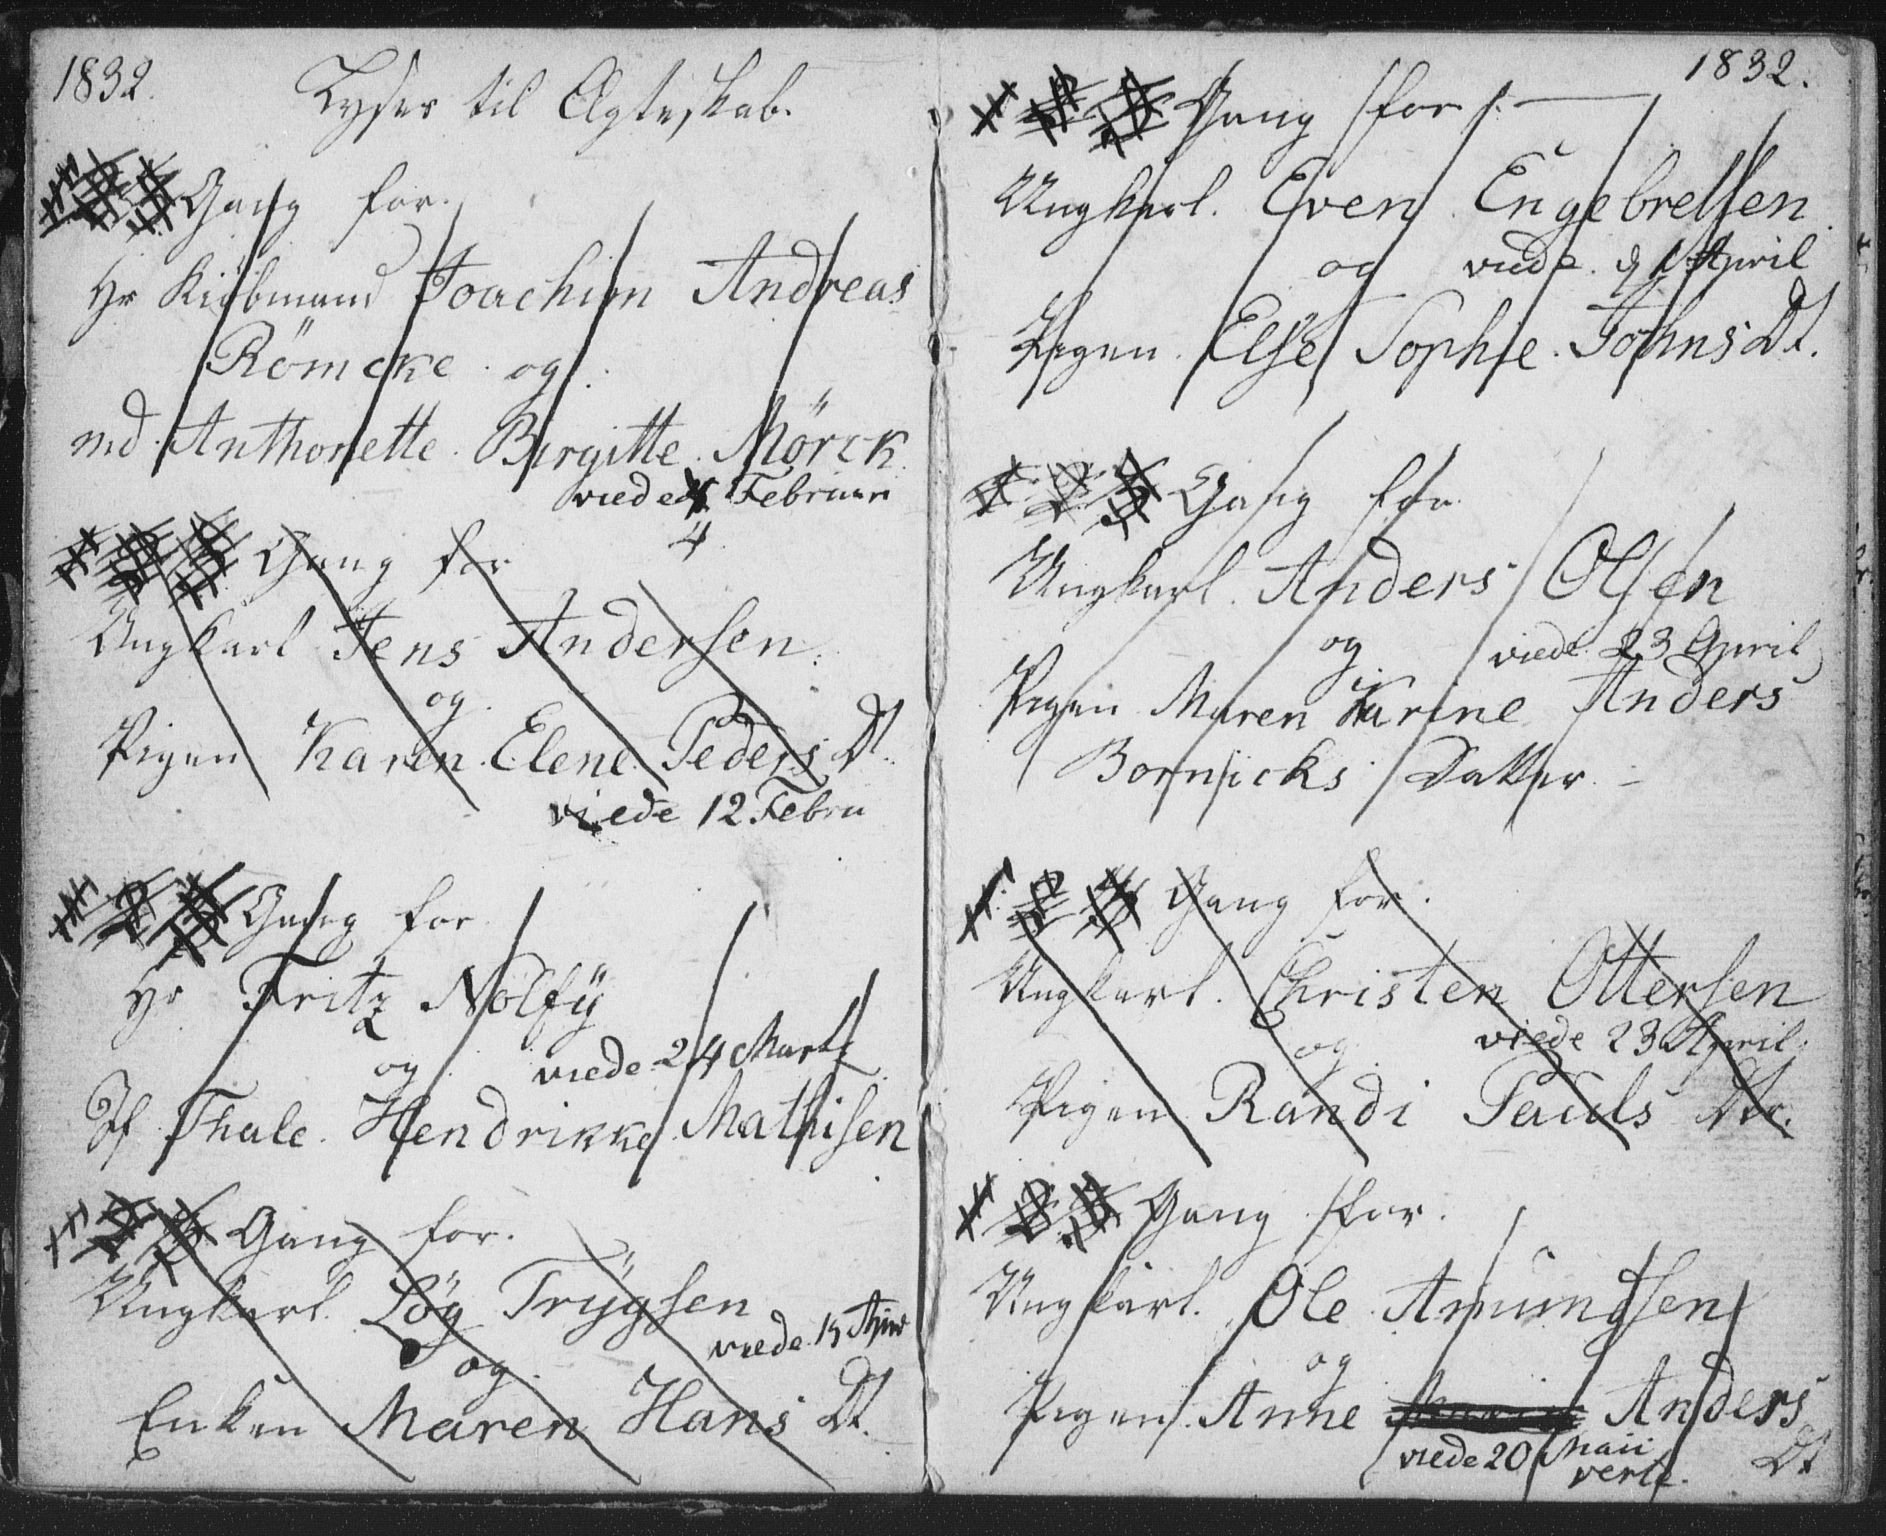 1832.
Lyses til Ægteskab.
1 2 3 Gang for.
Hr Kiöbmand Joachim Andreas
Römcke og
md. Anthonette Birgitte Mörck
viede Februar
4
1 2 3 Gang for
Ungkarl Jens Andersen.
og.
Pigen Karen Elene Peders Dt.
viede 12 Febru
1 2 3 Gang for
Hr Fritz Nolfÿ
og viede 24 Marts
Jf Thale Hendrikke Mathisen
1 2 3 Gang for.
Ungkarl Löÿ Trÿgsen
viede 15
og.
Enken Maren Hans Dt.
1832.
1 2 3 Gang for
Ungkarl. Even Engebretsen
og viede. d 1 April
Pigen Else Sophie Johns Dt.
1 2 3 Gang for
Ungkarl. Anders Olsen
og viede 23 April
Pigen Maren Karine Anders
Bornicks Datter.
1. 2 3 Gang for.
Ungkarl. Christen Ottersen
og. viede 23 April.
Pigen Randi Pauls Dtr.
1 2 3 Gang for.
Ungkarl. Ole Amundsen
og
Pigen Anne Anders
viede 20 maii Dt
verte.